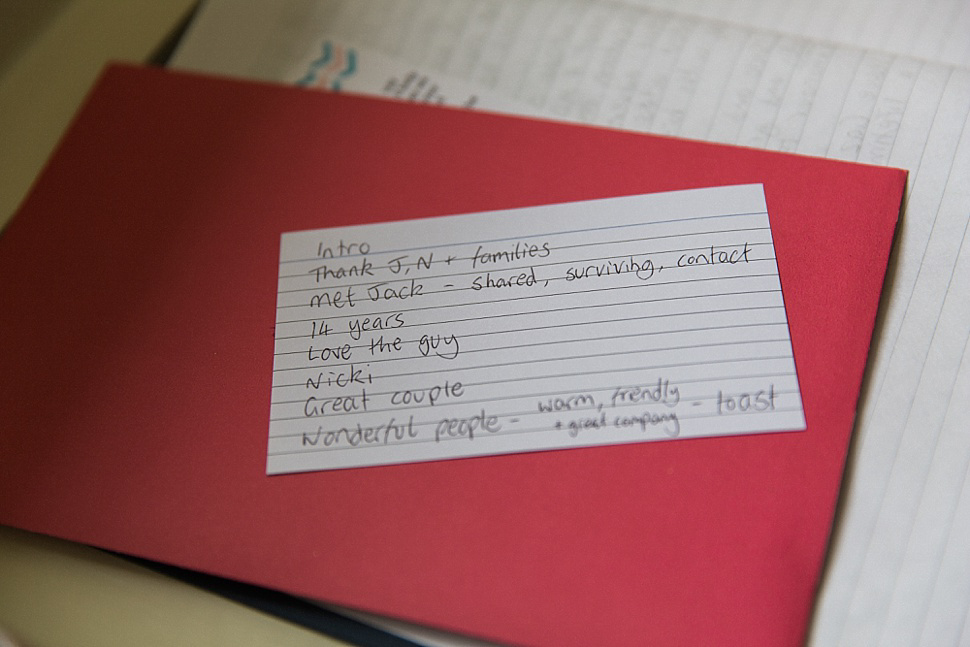 Intro
Thank J, N + families
Met Jack - shared, surviving, contact
14 years
Love the guy
Nicki
Great couple
Wonderful people - warm, frendly + great company - toast